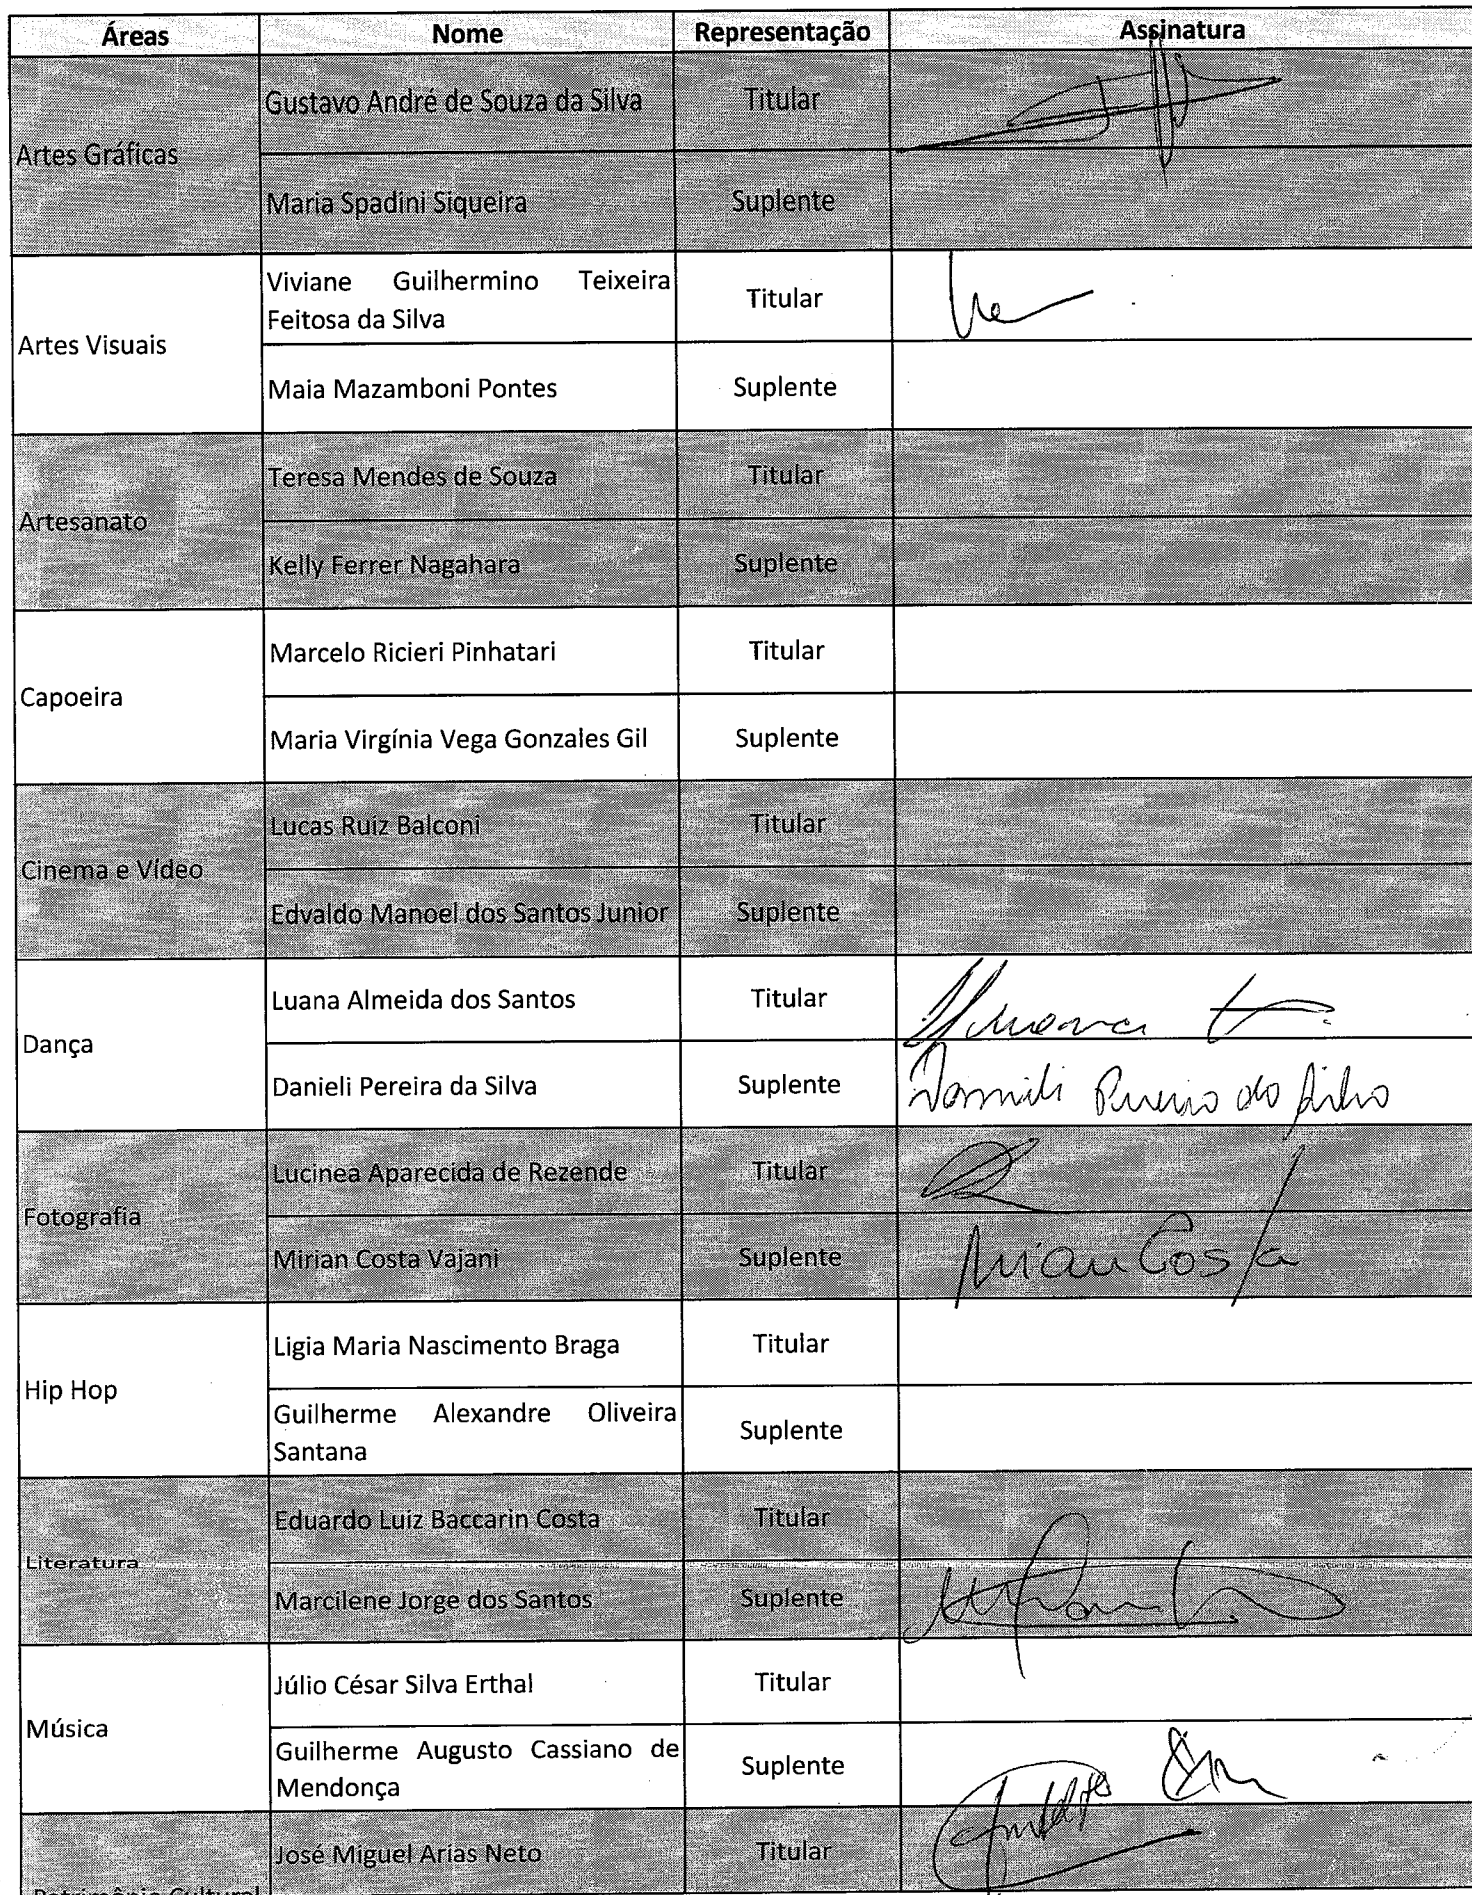 Áreas Nome Representação Assinatura
Artes Gráficas
Gustavo André de Souza da Silva Titular
Maria Spadini Siqueira Suplente
Artes Visuais
Viviane Guilhermino Teixeira
Feitosa da Silva
Titular
Maia Mazamboni Pontes Suplente
Artesanato
Teresa Mendes de Souza Titular
Kelly Ferrer Nagahara Suplente
Capoeira
Marcelo Ricieri Pinhatari Titular
Maria Virgínia Vega Gonzales Gil Suplente
Cinema e Vídeo
Lucas Ruiz Balconi Titular
Edvaldo Manoel dos Santos Junior Suplente
Dança
Luana Almeida dos Santos Titular
Danieli Pereira da Silva Suplente Danieli Pereira da Silva
Fotografia
Lucinea Aparecida de Rezende Titular
Mirian Costa Vajani Suplente Mirian Costa
Hip Hop
Ligia Maria Nascimento Braga Titular
Guilherme Alexandre Oliveira
Santana
Suplente
Literatura
Eduardo Luiz Baccarin Costa Titular
Marcilene Jorge dos Santos Suplente
Música
Júlio César Silva Erthal Titular
Guilherme Augusto Cassiano de
Mendonça
Suplente
José Miguel Arias Neto Titular
Patrimônio Cultural